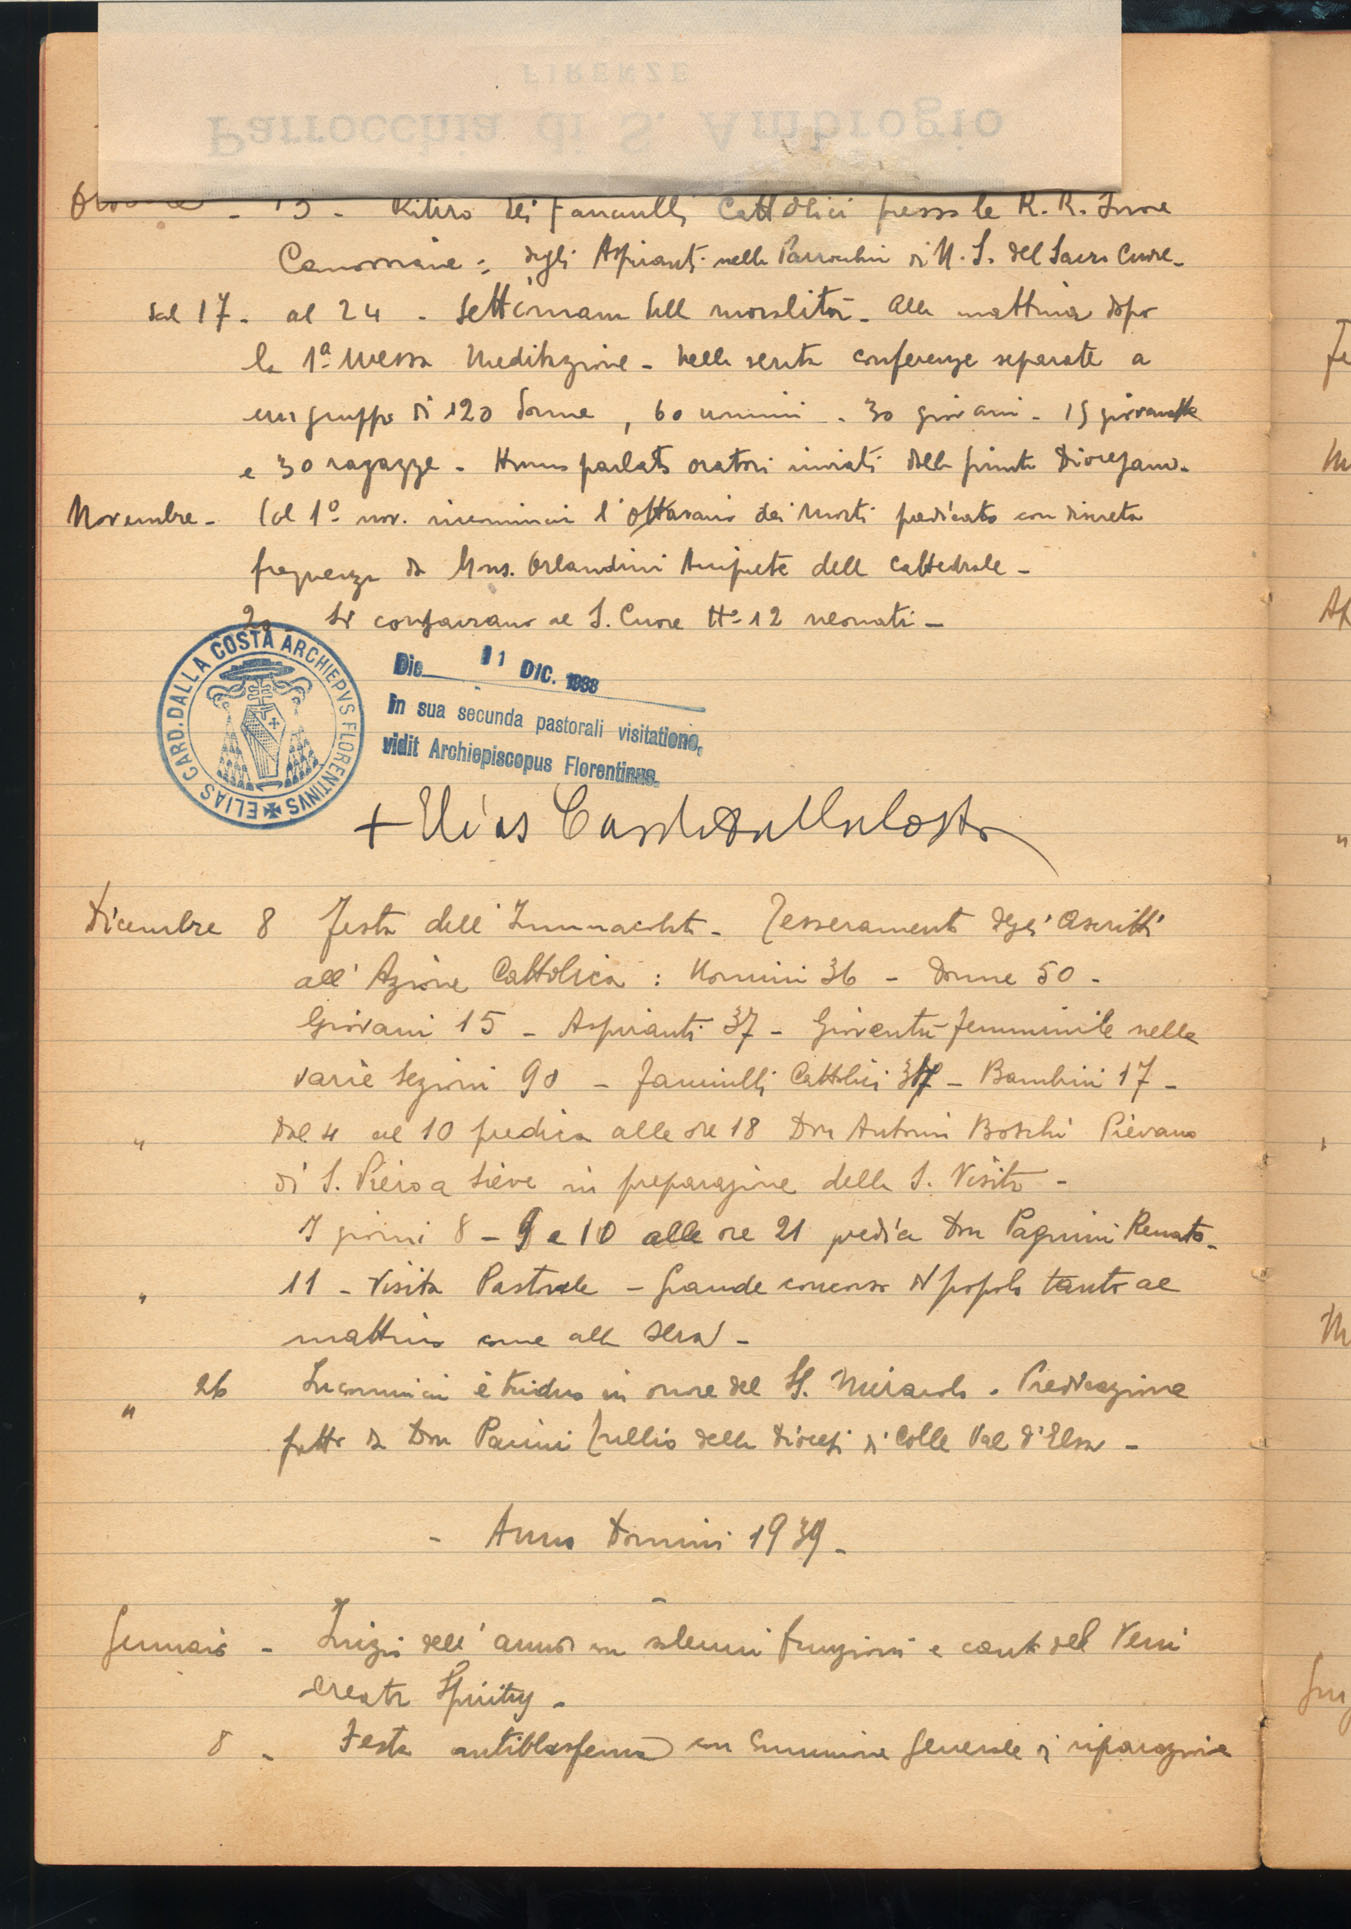 FIRENZE
Parrocchia di S. Ambrogio
Ottobre - 13 - Ritiro dei fanciulli Cattolici presso le R. R. Suore
Canossiane: degli Aspiranti nella Parrocchia di N. S. del Sacro Cuore -
dal 17 - al 24 - Settimana della moralità - Alla mattina dopo
la 1ª Messa Meditazione - Nella serata conferenze separate a
un gruppo di 120 donne, 60 uomini - 30 giovani - 15 giovanette
e 30 ragazze - Hanno parlato oratori inviati dalla Giunta Diocesana -
Novembre - Col 1º nov. incomincia l'Ottavario dei Morti predicato con discreta
frequenza da Mons. Orlandini Arciprete della Cattedrale -
20 Si consacrano al S. Cuore Nº 12 neonati -
ELIAS CARD. DALLA COSTA ARCHIEPVS FLORENTINVS
Die 11 DIC. 1938
In sua secunda pastorali visitatione,
vidit Archiepiscopus Florentinus.
+ Elias Card. Dalla Costa
Dicembre 8 Festa dell'Immacolata - Tesseramento degli ascritti
all'Azione Cattolica: Uomini 36 - Donne 50 -
Giovani 15 - Aspiranti 37 - Gioventù femminile nelle
varie Sezioni 90 - Fanciulli Cattolici - Bambini 17 -
" Dal 4 al 10 predica alle ore 18 Don Antonio Boschi Pievano
di S. Piero a Sieve in preparazione della S. Visita -
I giorni 8 - 9 e 10 alle ore 21 predica Don Pagnini Renato -
" 11 - Visita Pastorale - Grande concorso di popolo tanto al
mattino come alla sera -
" 26 Incomincia il triduo in onore del SS. Miracolo - Predicazione
fatta da Don Parini Tullio della Diocesi di Colle Val d'Elsa -
- Anno Domini 1939 -
Gennaio - Inizio dell'anno con solenni funzioni e canto del Veni
Creator Spiritus -
8 - Festa antiblasfema con Comunione Generale di riparazione